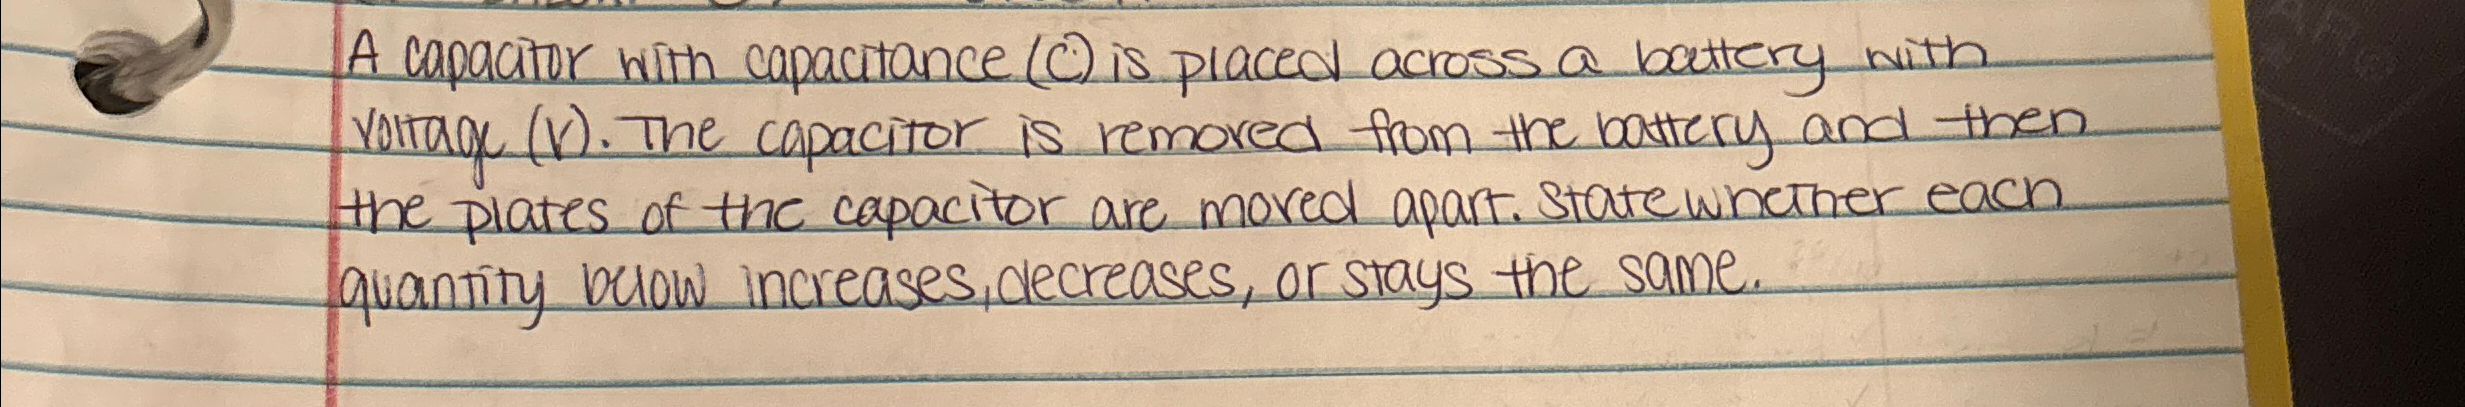 A capacitor with capacitance (C) is placed across a battery with
voltage (V). The capacitor is removed from the battery and then
the plates of the capacitor are moved apart. State whether each
quantity below increases, decreases, or stays the same.